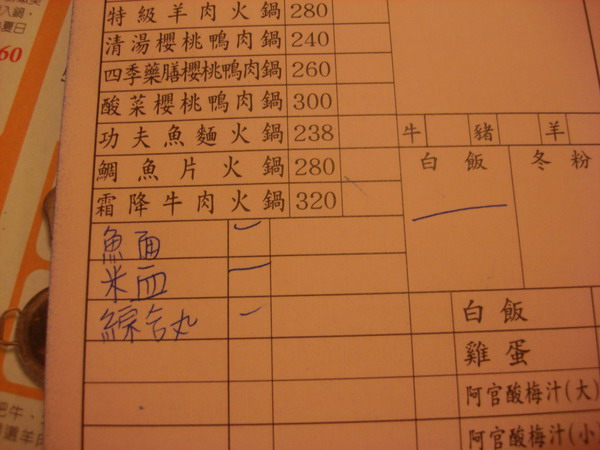 特級羊肉火鍋 280
清湯櫻桃鴨肉鍋 240
四季藥膳櫻桃鴨肉鍋 260
酸菜櫻桃鴨肉鍋 300
功夫魚麵火鍋 238
鯛魚片火鍋 280
霜降牛肉火鍋 320
牛 豬 羊
白飯 冬粉
魚面 一
米血 一
綜合丸 一
白飯
雞蛋
阿官酸梅汁(大)
阿官酸梅汁(小)
入鍋
夏日
60